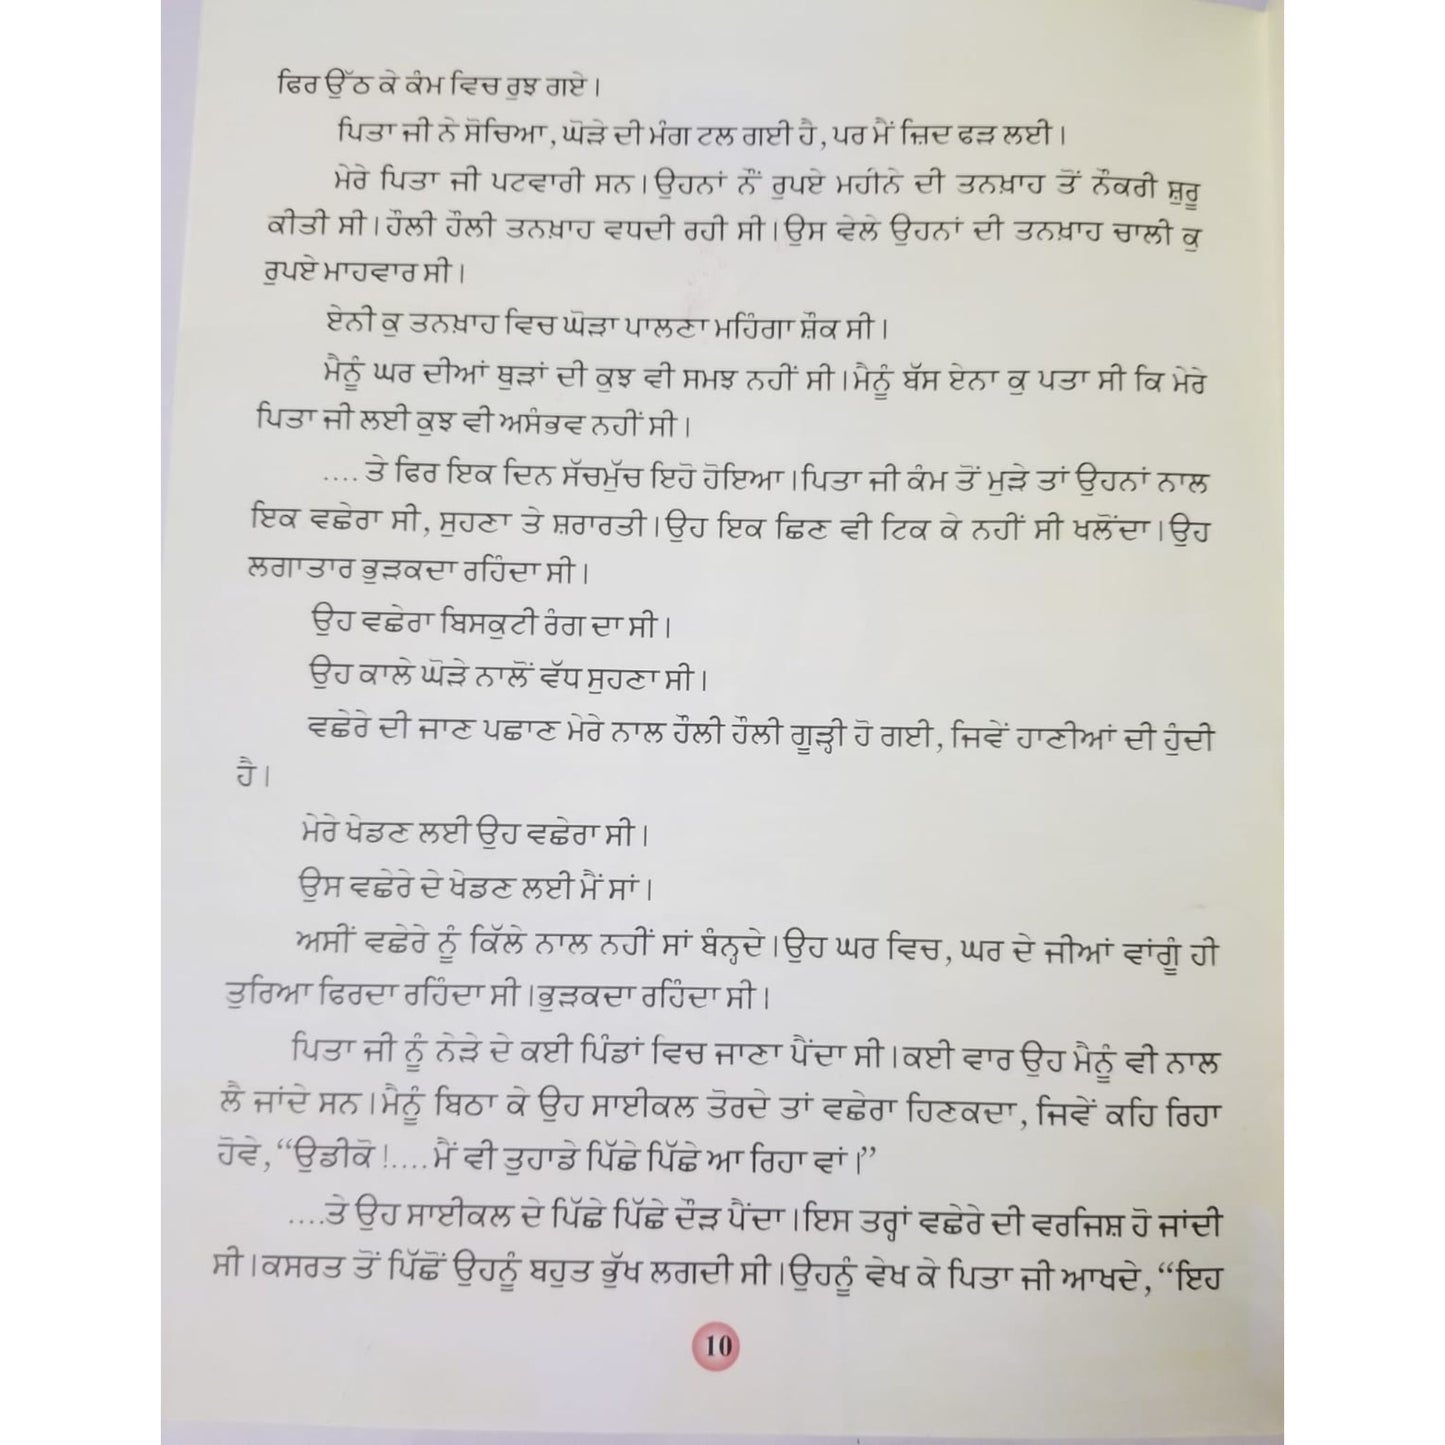 ਫਿਰ ਉੱਠ ਕੇ ਕੰਮ ਵਿਚ ਰੁਝ ਗਏ।
ਪਿਤਾ ਜੀ ਨੇ ਸੋਚਿਆ, ਘੋੜੇ ਦੀ ਮੰਗ ਟਲ ਗਈ ਹੈ, ਪਰ ਮੈਂ ਜ਼ਿਦ ਫੜ ਲਈ।
ਮੇਰੇ ਪਿਤਾ ਜੀ ਪਟਵਾਰੀ ਸਨ। ਉਹਨਾਂ ਨੌਂ ਰੁਪਏ ਮਹੀਨੇ ਦੀ ਤਨਖ਼ਾਹ ਤੋਂ ਨੌਕਰੀ ਸ਼ੁਰੂ
ਕੀਤੀ ਸੀ। ਹੌਲੀ ਹੌਲੀ ਤਨਖ਼ਾਹ ਵਧਦੀ ਰਹੀ ਸੀ। ਉਸ ਵੇਲੇ ਉਹਨਾਂ ਦੀ ਤਨਖ਼ਾਹ ਚਾਲੀ ਕੁ
ਰੁਪਏ ਮਾਹਵਾਰ ਸੀ।
ਏਨੀ ਕੁ ਤਨਖ਼ਾਹ ਵਿਚ ਘੋੜਾ ਪਾਲਣਾ ਮਹਿੰਗਾ ਸ਼ੌਕ ਸੀ।
ਮੈਨੂੰ ਘਰ ਦੀਆਂ ਥੁੜਾਂ ਦੀ ਕੁਝ ਵੀ ਸਮਝ ਨਹੀਂ ਸੀ। ਮੈਨੂੰ ਬੱਸ ਏਨਾ ਕੁ ਪਤਾ ਸੀ ਕਿ ਮੇਰੇ
ਪਿਤਾ ਜੀ ਲਈ ਕੁਝ ਵੀ ਅਸੰਭਵ ਨਹੀਂ ਸੀ।
....ਤੇ ਫਿਰ ਇਕ ਦਿਨ ਸੱਚਮੁੱਚ ਇਹੋ ਹੋਇਆ। ਪਿਤਾ ਜੀ ਕੰਮ ਤੋਂ ਮੁੜੇ ਤਾਂ ਉਹਨਾਂ ਨਾਲ
ਇਕ ਵਛੇਰਾ ਸੀ, ਸੁਹਣਾ ਤੇ ਸ਼ਰਾਰਤੀ। ਉਹ ਇਕ ਛਿਣ ਵੀ ਟਿਕ ਕੇ ਨਹੀਂ ਸੀ ਖਲੋਂਦਾ। ਉਹ
ਲਗਾਤਾਰ ਭੁੜਕਦਾ ਰਹਿੰਦਾ ਸੀ।
ਉਹ ਵਛੇਰਾ ਬਿਸਕੁਟੀ ਰੰਗ ਦਾ ਸੀ।
ਉਹ ਕਾਲੇ ਘੋੜੇ ਨਾਲੋਂ ਵੱਧ ਸੁਹਣਾ ਸੀ।
ਵਛੇਰੇ ਦੀ ਜਾਣ ਪਛਾਣ ਮੇਰੇ ਨਾਲ ਹੌਲੀ ਹੌਲੀ ਗੂੜ੍ਹੀ ਹੋ ਗਈ, ਜਿਵੇਂ ਹਾਣੀਆਂ ਦੀ ਹੁੰਦੀ
ਹੈ।
ਮੇਰੇ ਖੇਡਣ ਲਈ ਉਹ ਵਛੇਰਾ ਸੀ।
ਉਸ ਵਛੇਰੇ ਦੇ ਖੇਡਣ ਲਈ ਮੈਂ ਸਾਂ।
ਅਸੀਂ ਵਛੇਰੇ ਨੂੰ ਕਿੱਲੇ ਨਾਲ ਨਹੀਂ ਸਾਂ ਬੰਨ੍ਹਦੇ। ਉਹ ਘਰ ਵਿਚ, ਘਰ ਦੇ ਜੀਆਂ ਵਾਂਗੂੰ ਹੀ
ਤੁਰਿਆ ਫਿਰਦਾ ਰਹਿੰਦਾ ਸੀ। ਭੁੜਕਦਾ ਰਹਿੰਦਾ ਸੀ।
ਪਿਤਾ ਜੀ ਨੂੰ ਨੇੜੇ ਦੇ ਕਈ ਪਿੰਡਾਂ ਵਿਚ ਜਾਣਾ ਪੈਂਦਾ ਸੀ। ਕਈ ਵਾਰ ਉਹ ਮੈਨੂੰ ਵੀ ਨਾਲ
ਲੈ ਜਾਂਦੇ ਸਨ। ਮੈਨੂੰ ਬਿਠਾ ਕੇ ਉਹ ਸਾਈਕਲ ਤੋਰਦੇ ਤਾਂ ਵਛੇਰਾ ਹਿਣਕਦਾ, ਜਿਵੇਂ ਕਹਿ ਰਿਹਾ
ਹੋਵੇ, “ਉਡੀਕੋ !....ਮੈਂ ਵੀ ਤੁਹਾਡੇ ਪਿੱਛੇ ਪਿੱਛੇ ਆ ਰਿਹਾ ਵਾਂ।”
....ਤੇ ਉਹ ਸਾਈਕਲ ਦੇ ਪਿੱਛੇ ਪਿੱਛੇ ਦੌੜ ਪੈਂਦਾ। ਇਸ ਤਰ੍ਹਾਂ ਵਛੇਰੇ ਦੀ ਵਰਜਿਸ਼ ਹੋ ਜਾਂਦੀ
ਸੀ। ਕਸਰਤ ਤੋਂ ਪਿੱਛੋਂ ਉਹਨੂੰ ਬਹੁਤ ਭੁੱਖ ਲਗਦੀ ਸੀ। ਉਹਨੂੰ ਵੇਖ ਕੇ ਪਿਤਾ ਜੀ ਆਖਦੇ, “ਇਹ
10